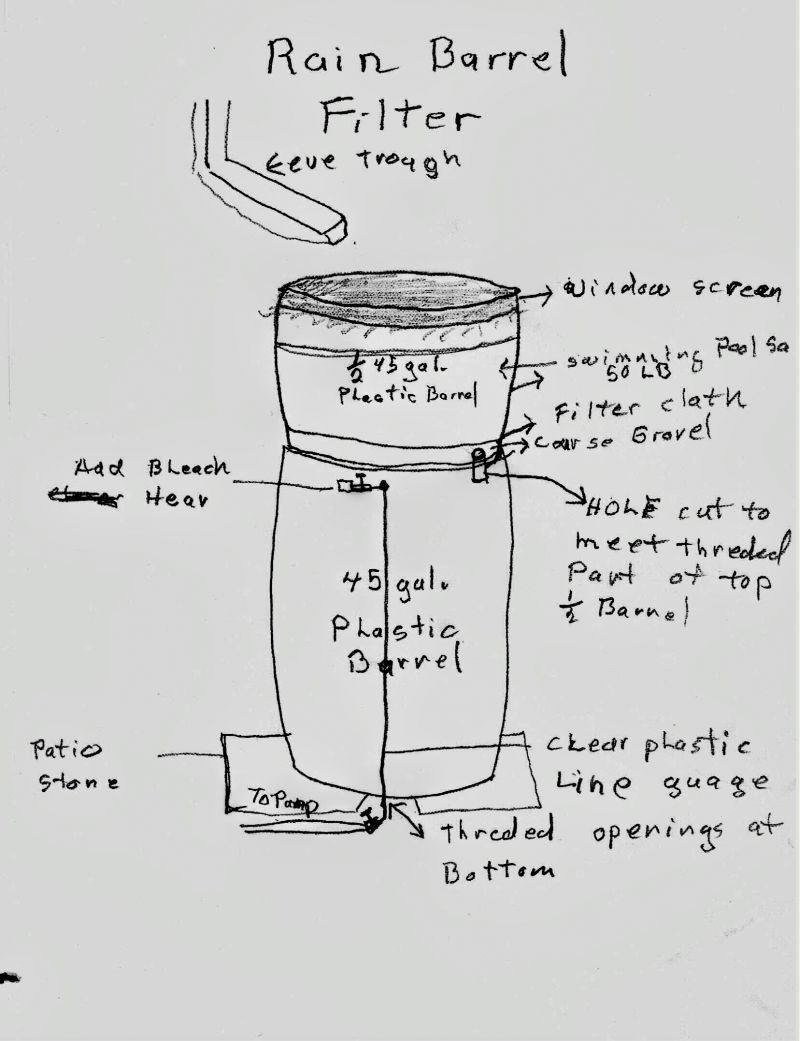 Rain Barrel
Filter
eve trough
Window screen
swimming Pool Sa
50 LB
1/2 45 gal.
Plastic Barrel
Filter cloth
Course Gravel
Add Bleach
Hear
HOLE cut to
meet threded
Part of top
1/2 Barrel
45 gal.
Plastic
Barrel
Patio
Stone
Clear plastic
Line guage
To Pump
threded openings at
Bottom